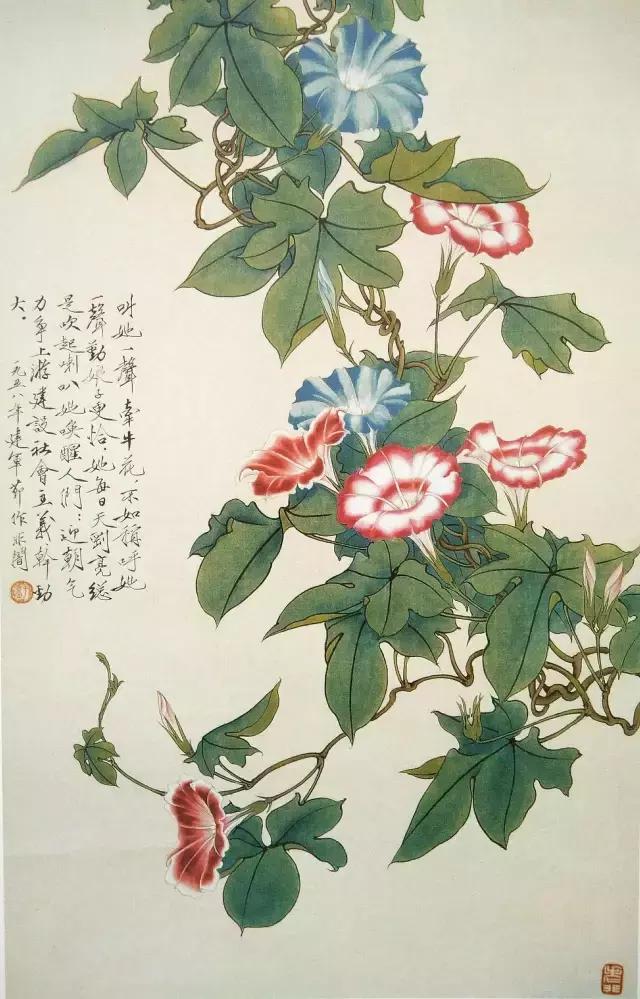 叫她一聲牽牛花，不如稱呼她
一聲勤娘子更恰，她每日天剛亮總
是吹起喇叭她喚醒人們：迎朝气
力爭上游建設社會主義幹勁
大。
一九五八年建軍節作非闇